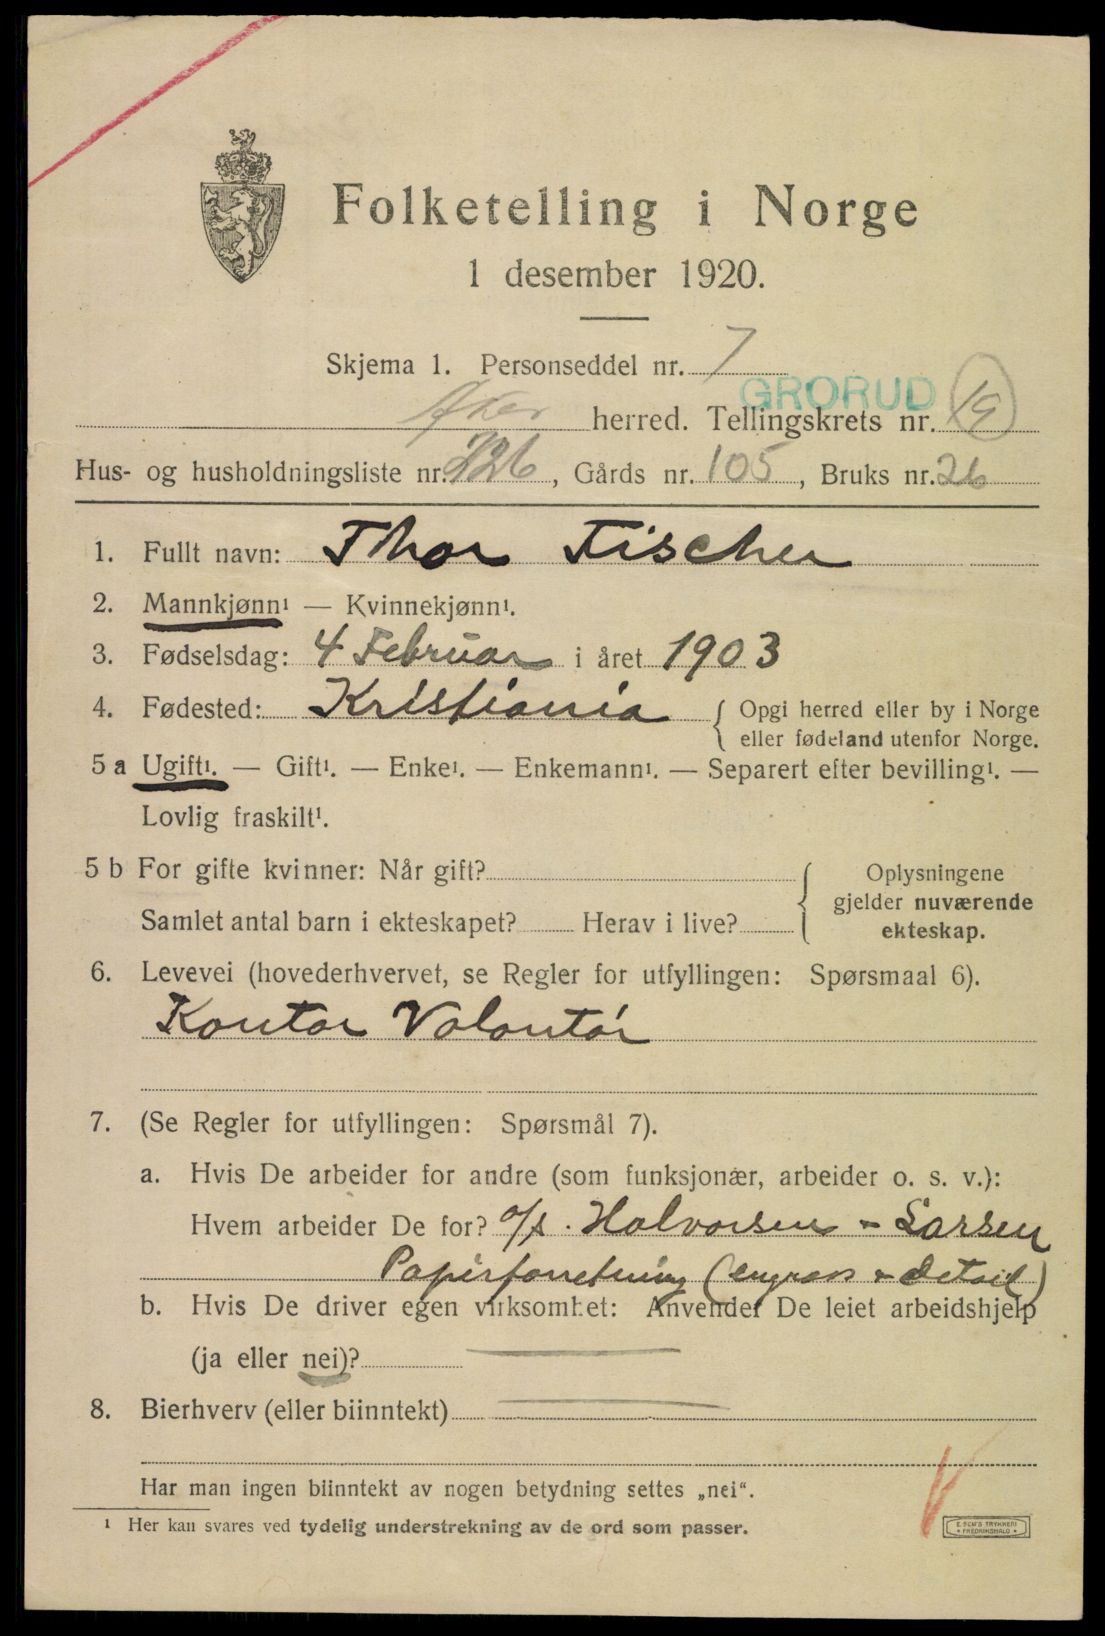 Folketelling i Norge
1 desember 1920.
Skjema 1. Personseddel nr. 7
GRORUD
Aker herred. Tellingskrets nr. 19
Hus- og husholdningsliste nr. 226, Gårds nr. 105, Bruks nr. 26
1. Fullt navn: Thor Fischer
2. Mannkjønn¹ — Kvinnekjønn¹.
3. Fødselsdag: 4 Februar i året 1903
4. Fødested: Kristiania { Opgi herred eller by i Norge
eller fødeland utenfor Norge.
5 a Ugift¹. — Gift¹. — Enke¹. — Enkemann¹. — Separert efter bevilling¹. —
Lovlig fraskilt¹.
5 b For gifte kvinner: Når gift? { Oplysningene
gjelder nuværende
Samlet antal barn i ekteskapet? Herav i live?
ekteskap.
6. Levevei (hovederhvervet, se Regler for utfyllingen: Spørsmaal 6).
Kontor Volontør
7. (Se Regler for utfyllingen: Spørsmål 7).
a. Hvis De arbeider for andre (som funksjonær, arbeider o. s. v.):
Hvem arbeider De for? a/s. Halvorsen & Larsen
Papirforretning (engros & detail)
b. Hvis De driver egen virksomhet: Anvender De leiet arbeidshjelp
(ja eller nei)? —
8. Bierhverv (eller biinntekt) —
Har man ingen biinntekt av nogen betydning settes „nei“.
¹ Her kan svares ved tydelig understrekning av de ord som passer.
E. SEM'S TRYKKERI
• FREDRIKSHALD •